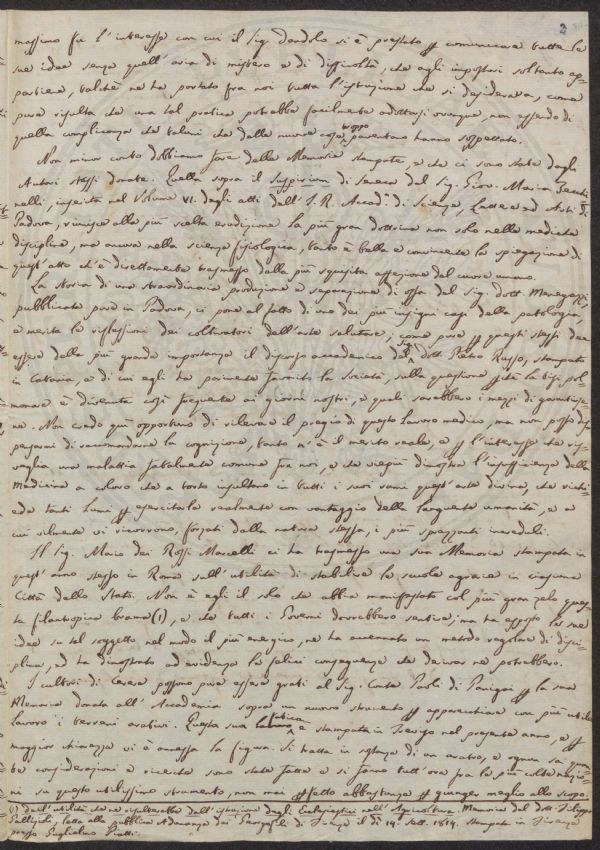 2
massimo fu l'interesse con cui il Sig. Dandolo si è prestato p comunicare tutte le
sue idee senza quell'aria di mistero e di difficoltà, che agli impostori soltanto ap=
partiene, talchè ne ha portato fra noi tutta l'istruzione che si desiderava, come
pure risulta che una tal pratica potrebbe facilmente adottarsi ovunque, non essendo di
quella complicanza che taluni che dalle nuove cose troppo paventano hanno sospettato.
Non minor conto dobbiamo fare delle Memorie stampate, e che ci sono state dagli
Autori stessi donate. Quella sopra il suspirium di Seneca del Sig. Giov. Maria
nelli, inserita nel Volume VI. degli atti dell'I. R. Accad.ª di Scienze, Lettere ed Arti di
Padova, riunisce alla più scelta erudizione la più gran dottrina non solo nelle mediche
discipline, ma ancora nella scienza fisiologica, tanto è bella e convincente la spiegazione di
quest'atto ch'è direttamente trasmesso dalla più squisita affezione del cuore umano.
La storia di una straordinaria produzione e separazione di ossa del Sig. dott. Meneg
pubblicata pure in Padova, ci pone al fatto di uno dei più insigni casi della patologia,
e merita le riflessioni dei coltivatori dell'arte salutare, come pure p questi stessi dee
essere della più grande importanza il discorso accademico del Sig. dott. Pietro Russo, stampato
in Catania, e di cui egli ha parimente favorito la Società, sulla questione p chè la tisi pol=
monare è divenuta così frequente ai giorni nostri, e quali sarebbero i mezzi di garantirse=
ne. Non credo quì opportuno di rilevare il pregio di questo lavoro medico, ma non posso dis=
pensarmi di raccomandarne la cognizione, tanto n'è il merito reale, e p l'interesse che ris=
veglia una malattia fatalmente comune fra noi, e che viepiù dimostra l'insufficienza della
Medicina a coloro che a torto insultano in tutti i suoi rami quest'arte divina, che richi=
ede tanti lumi p esercitarla realmente con vantaggio della languente umanità, e a
cui vilmente vi ricorrono, forzati dalla natura stessa, i più sprezzanti increduli.
Il Sig. Mario dei Rossi Marcelli ci ha trasmesso una sua Memoria stampata in
quest'anno stesso in Roma sull'utilità di stabilire le scuole agrarie in ciascuna
Città dello Stato. Non è egli il solo che abbia manifestato col più gran zelo ques=
ta filantropica brama (1), e che tutti i Governi dovrebbero sentire; ma ha esposto le sue
idee su tal soggetto nel modo il più energico, ne ha accennato un metodo regolare di disci=
plina, ed ha dimostrato ad evidenza le felici conseguenze che derivar ne potrebbero.
I cultori di Cerere possono pure essere grati al Sig. Conte Paoli di p la sua
Memoria donata all'Accademia sopra un nuovo strumento p apparecchiare con più utile
lavoro i terreni arativi. Questa sua fatica è stampata in nel presente anno, e p
maggior chiarezza vi è annessa la figura. Si tratta in sostanza di un aratro, e ognun sa quan=
te considerazioni e ricerche sono state fatte e si fanno tutt'ora fra le più colte nazio=
ni su questo utilissimo strumento, non mai p fatto abbastanza p giunger meglio allo scopo.
(1) Dell'utilità che ne risulterebbe dall'istruzione degli Ecclesiastici nell'Agricoltura. Memoria del dott. Filippo
Gallizioli, letta alla pubblica Adunanza dei Georgofili di Firenze il dì 14. Sett. 1814. Stampata in Firenze
presso Guglielmo Piatti.